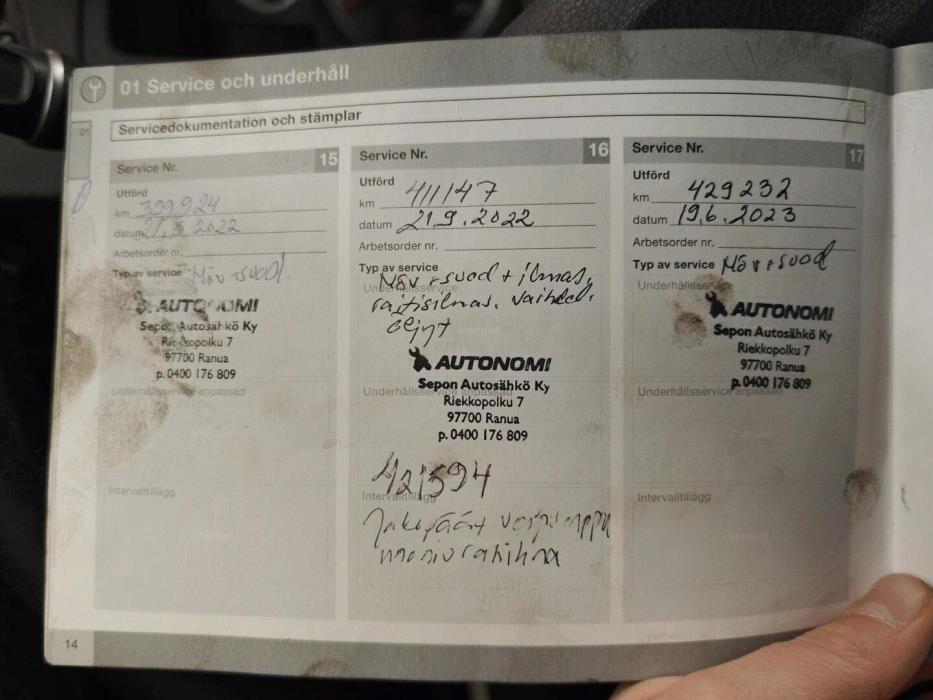 01 Service och underhåll
01
Servicedokumentation och stämplar
Service Nr. 15
Utförd
km 399924
datum 2022
Arbetsorder nr.
Typ av service
AUTONOMI
Sepon Autosähkö Ky
Riekkopolku 7
97700 Ranua
p. 0400 176 809
Underhållsservice anpassad
Intervalltillägg
Service Nr. 16
Utförd
km 411147
datum 21.9.2022
Arbetsorder nr.
Typ av service
Möv + suod + ilmas,
Underhållsservice
raitisilmas. vaihdel.
öljyt
Stämpel
AUTONOMI
Sepon Autosähkö Ky
Underhållsservice anpassad
Riekkopolku 7
97700 Ranua
p. 0400 176 809
421594
Intervalltillägg
Jakopäät vesipumppu
moniurahihna
Service Nr. 17
Utförd
km 429232
datum 19.6.2023
Arbetsorder nr.
Typ av service Möv + suod
Underhållsservice
AUTONOMI
Sepon Autosähkö Ky
Riekkopolku 7
97700 Ranua
p. 0400 176 809
Underhållsservice anpassad
Stämpel
Intervalltillägg
Stämpel
14